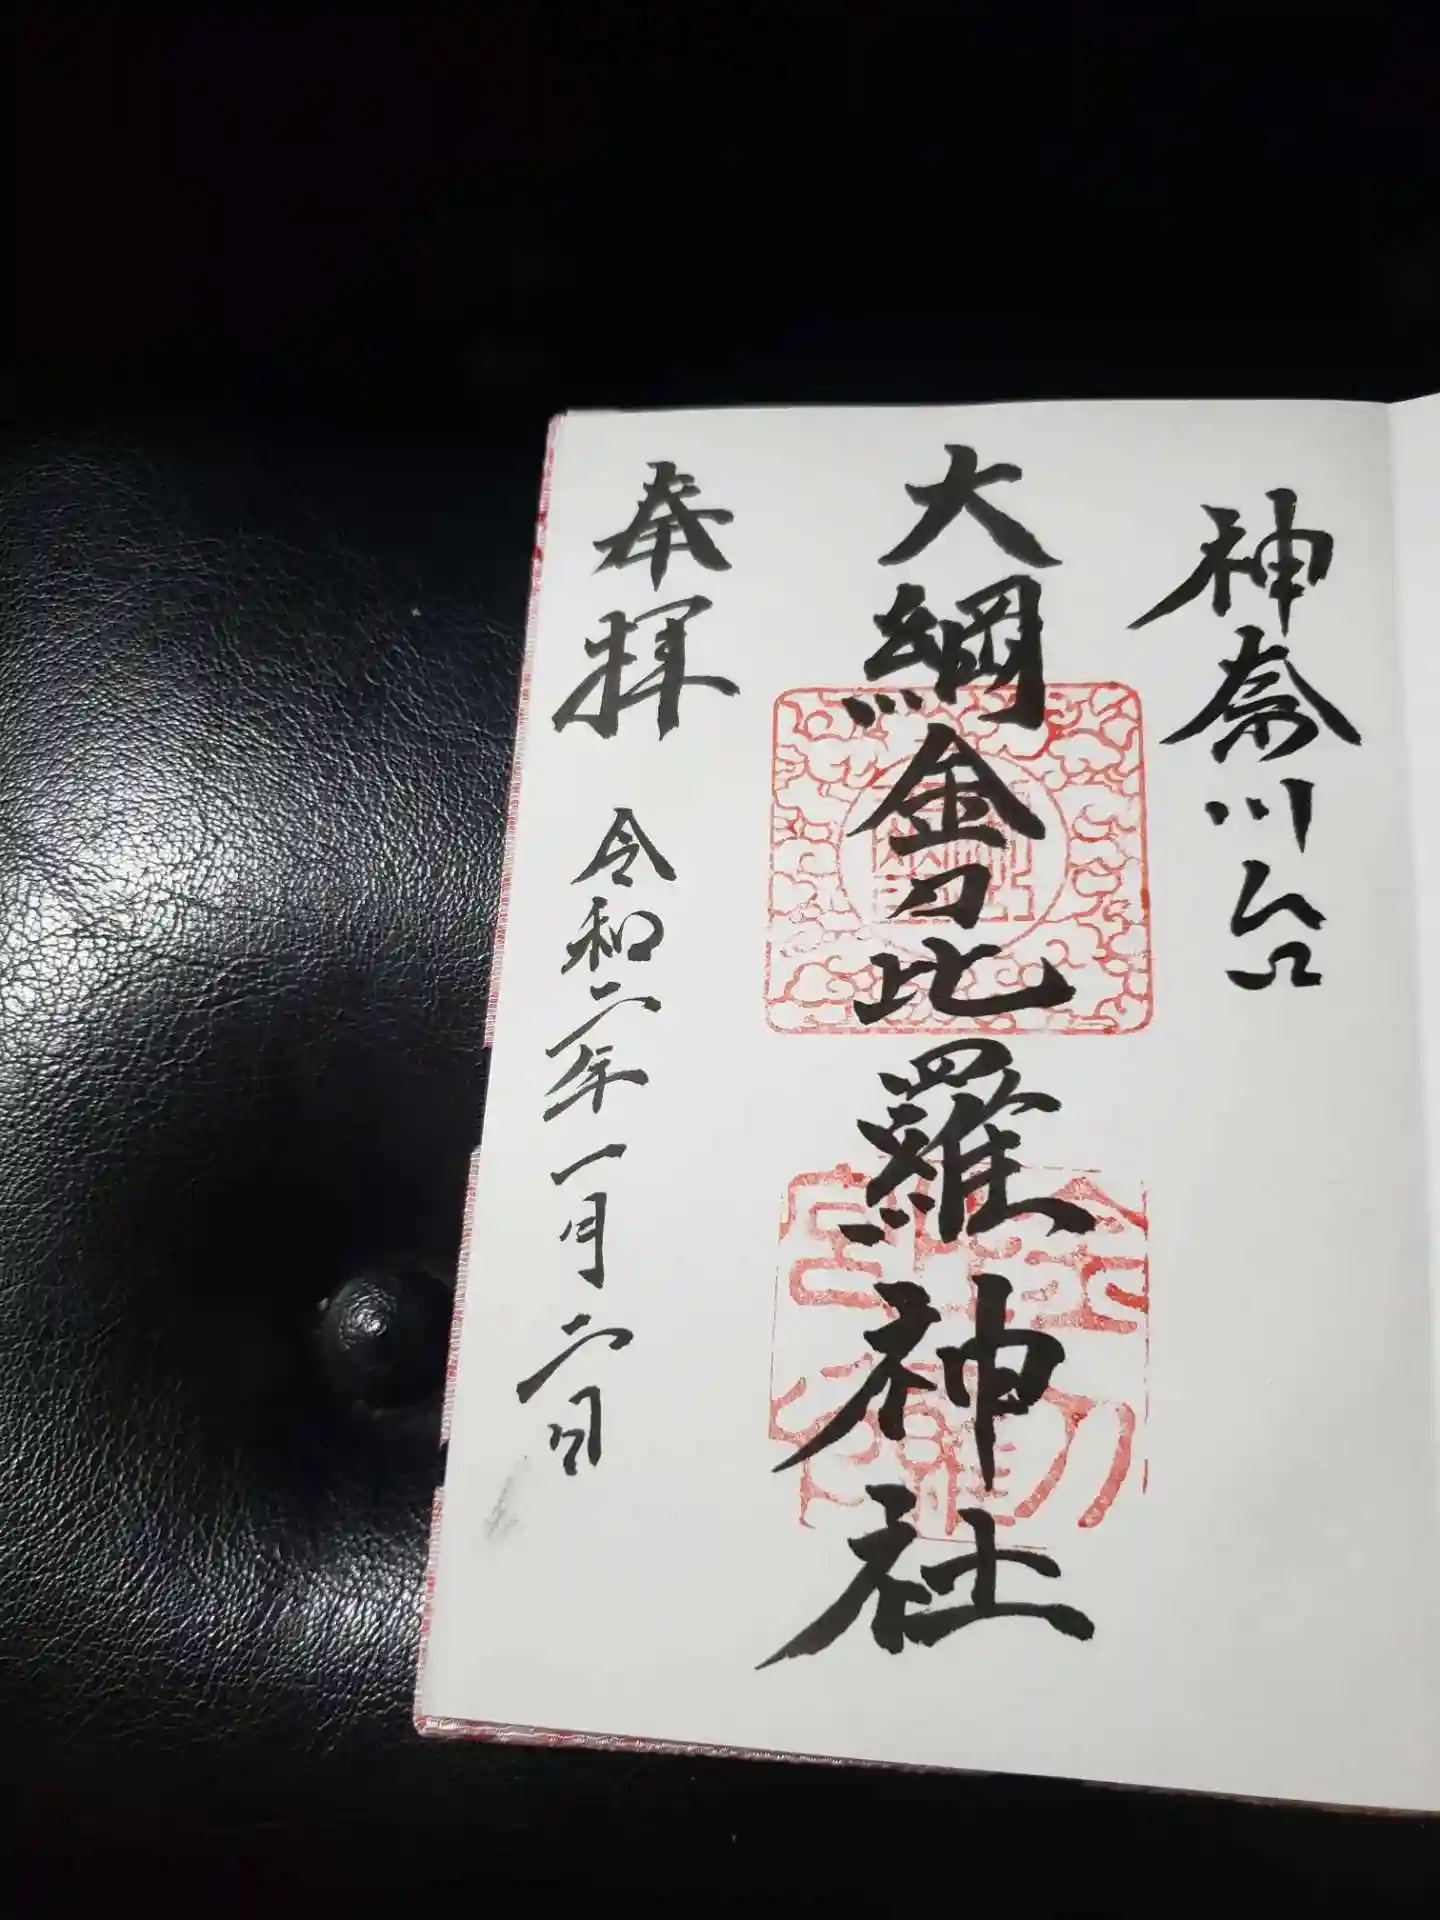 神奈川台
大綱金刀比羅神社
奉拝
令和二年一月二日